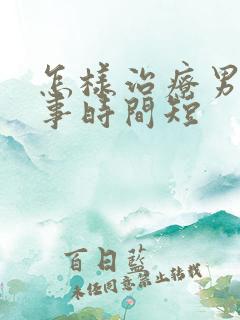 怎樣治療男
事時間短
百日藍
未經同意禁止轉載